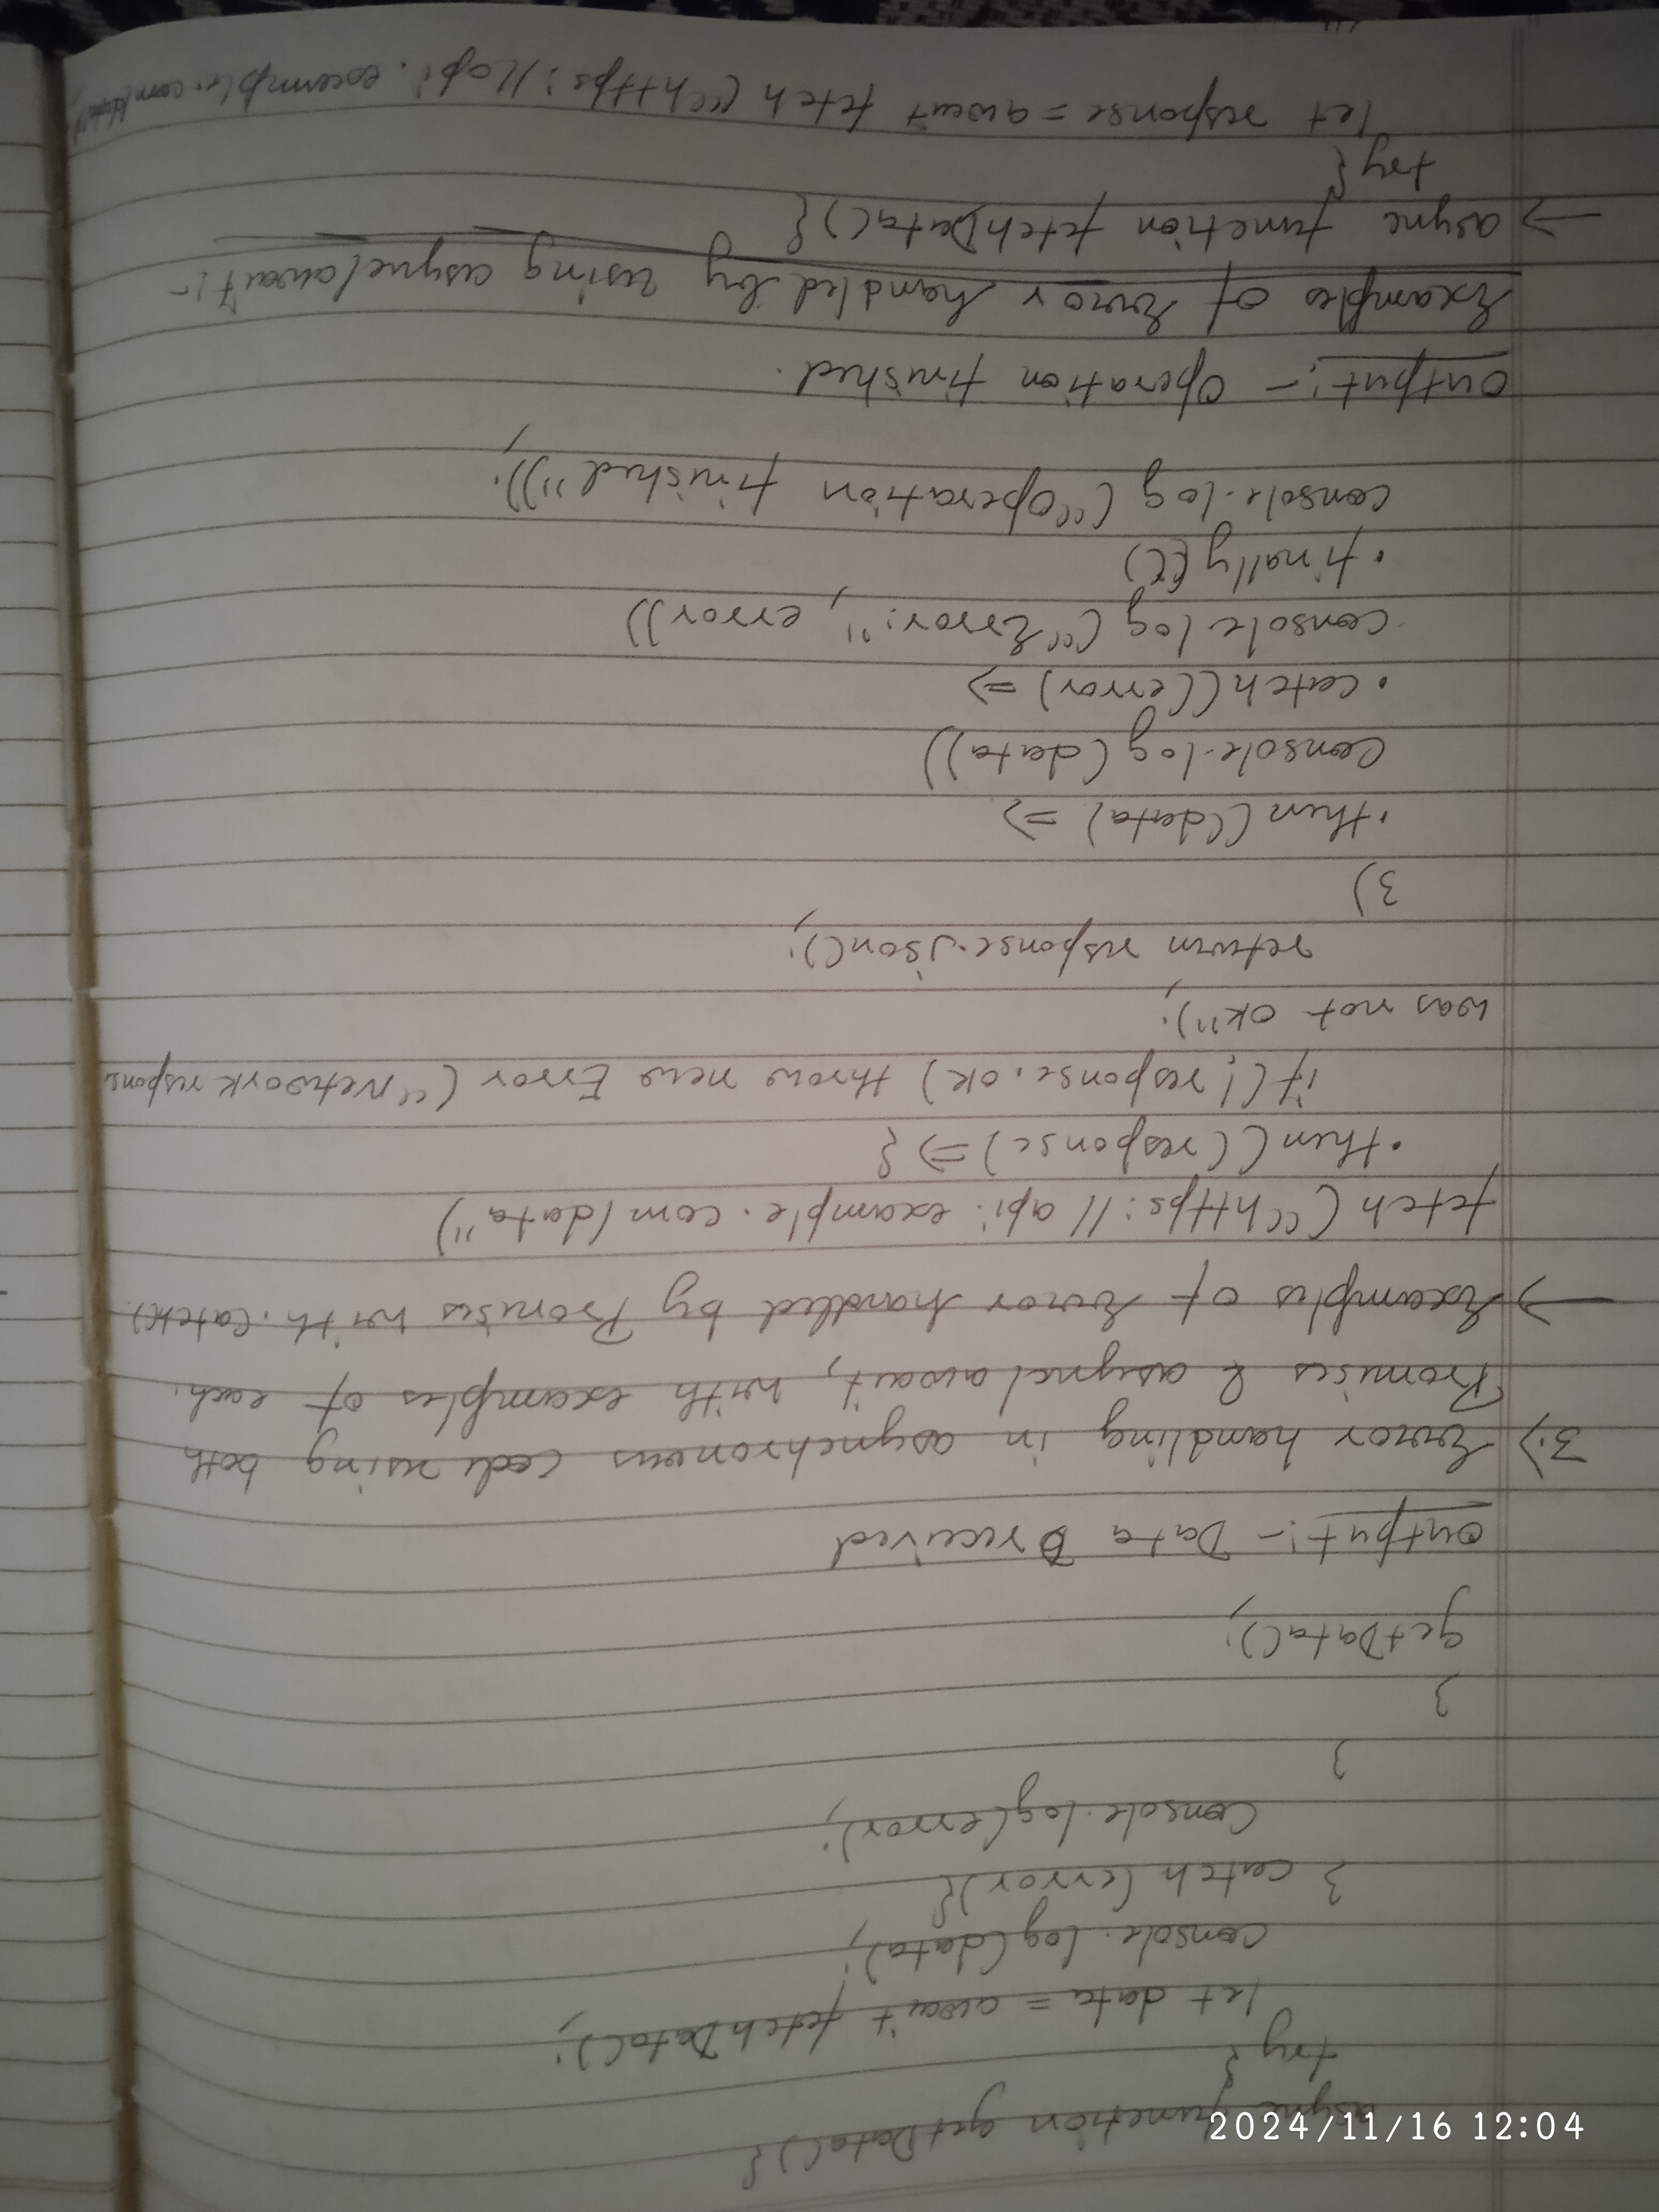 async function getData(){
try{
let data = await fetchData();
console.log(data);
} catch (error){
console.log(error);
}
}
getData();
output:- Data received
3.) Error handling in asynchronous code using both
Promises & async/await, with examples of each.
→ Examples of Error handled by Promises with .catch().
fetch ("https://api.example.com/data")
.then((response) => {
if(!response.ok) throw new Error ("Network response
was not ok");
return response.json();
})
.then((data) =>
console.log(data))
.catch((error) =>
console.log("Error:", error))
.finally(()
console.log("Operation finished"));
output:- Operation finished.
Examples of Error handled by using async/await:-
→ async function fetchData(){
try{
let response = await fetch ("https://api.example.com/data");
2024/11/16 12:04